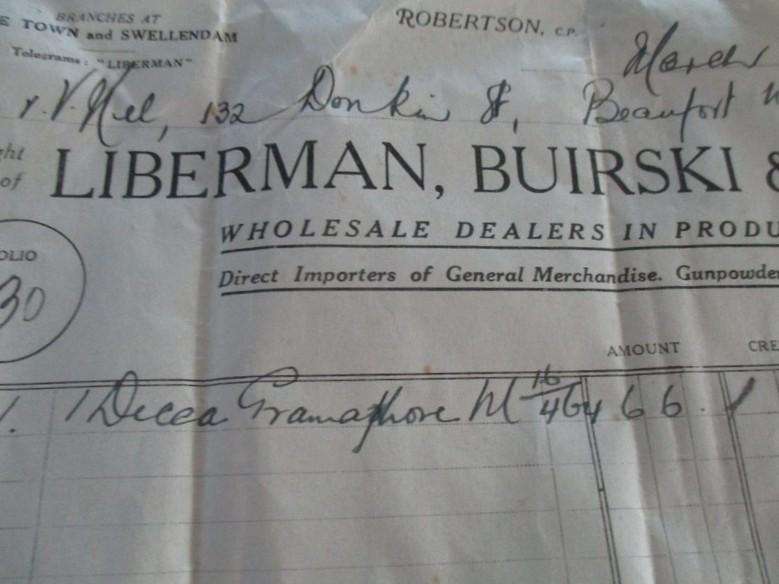 BRANCHES AT
E TOWN and SWELLENDAM
Telegrams: "LIBERMAN"
ROBERTSON, C.P.
March
r. V. Nel, 132 Donkin St, Beaufort W
ght
of
LIBERMAN, BUIRSKI &
WHOLESALE DEALERS IN PRODU
Direct Importers of General Merchandise. Gunpowder
OLIO
30
AMOUNT CRE
1. 1 Decca Gramaphone 6 6